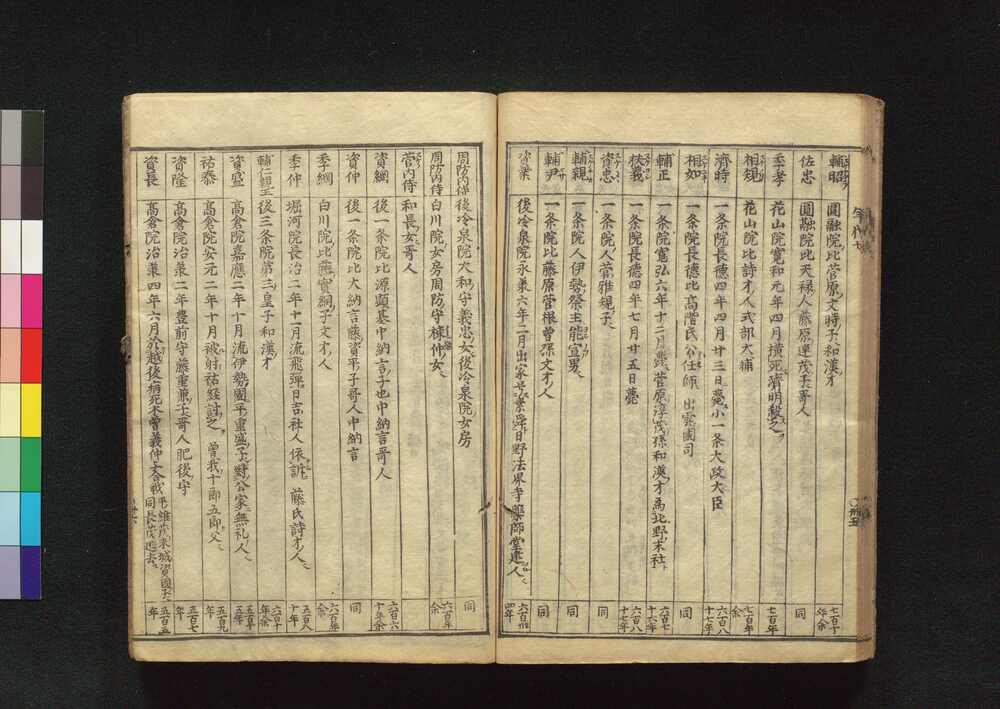 輔昭 圓融院比菅原文時子和漢才 七百十年余
佐忠 圓融院比天禄人藤原運茂子哥人 同
季孝 花山院寛和元年四月横死済明殺之 七百年
相規 花山院比詩才人式部大輔 七百年余
済時 一条院長徳四年四月廿三日薨小一条大政大臣 六百八十七年
相如 一条院長徳比高階氏公任師 出雲國司 同
輔正 一条院寛弘六年十二月薨菅原淳茂孫和漢才為北野末社 六百七十六年
扶義 一条院長徳四年七月廿五日薨 六百八十七年
資忠 一条院人菅雅規子 同
輔親 一条院人伊勢祭主能宣男 同
輔尹 一条院比藤原菅根曽孫文才人 同
資業 後冷泉院永兼六年二月出家号素舜日野法界寺薬師堂建人 六百卅四年
周防内侍 後冷泉院大和守義忠女後冷泉院女房 同
周防内侍 白川院女房周防守棟仲女 六百年余
菅内侍 和長女哥人
資綱 後一条院比源顕基中納言子也中納言哥人 六百六十年余
資仲 後一条院比大納言藤資平子哥人中納言 同
季綱 白川院比藤實綱子文才人 六百年余
季仲 堀河院長治二年十二月流飛弾日吉社人依訴 藤氏詩才人 五百八十年
輔仁親王 後三条院第三皇子和漢才 六百十年余
資盛 高倉院嘉應二年十月流伊勢國平重盛子對公家無礼人 五百十五年
祐泰 高倉院安元二年十月被射祐経討之 曽我十郎五郎父 五百九年
資隆 高倉院治承二年豊前守藤重兼子哥人肥後守 五百七年
資長 高倉院治兼四年六月於越後病死木曽義仲大合戦平維茂末城資國子同長茂逝去 五百五年